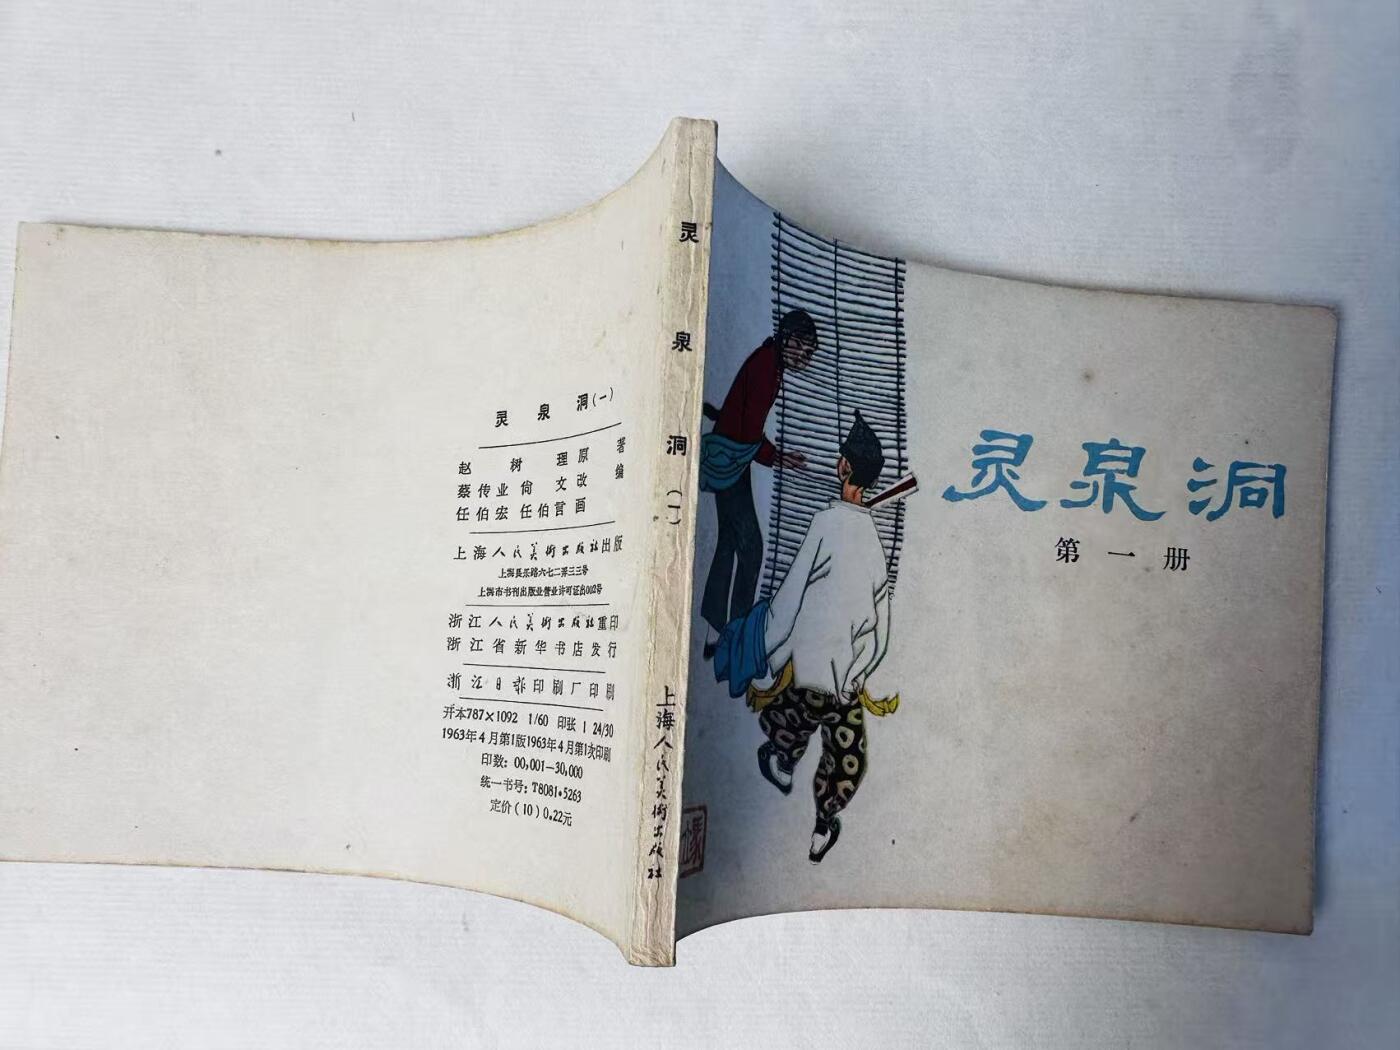 灵泉洞(一)
赵树理原著
蔡传业 尚文改编
任伯宏 任伯言画
上海人民美術出版社出版
上海長乐路六七二弄三三号
上海市书刊出版业营业许可证出002号
浙江人民美術出版社重印
浙江省新华书店发行
浙江日报印刷厂印刷
开本787×1092 1/60 印张 1 24/30
1963年4月第1版1963年4月第1次印刷
印数: 00,001—30,000
统一书号: T8081·5263
定价(10)0.22元
灵泉洞(一)
上海人民美術出版社
灵泉洞
第一册